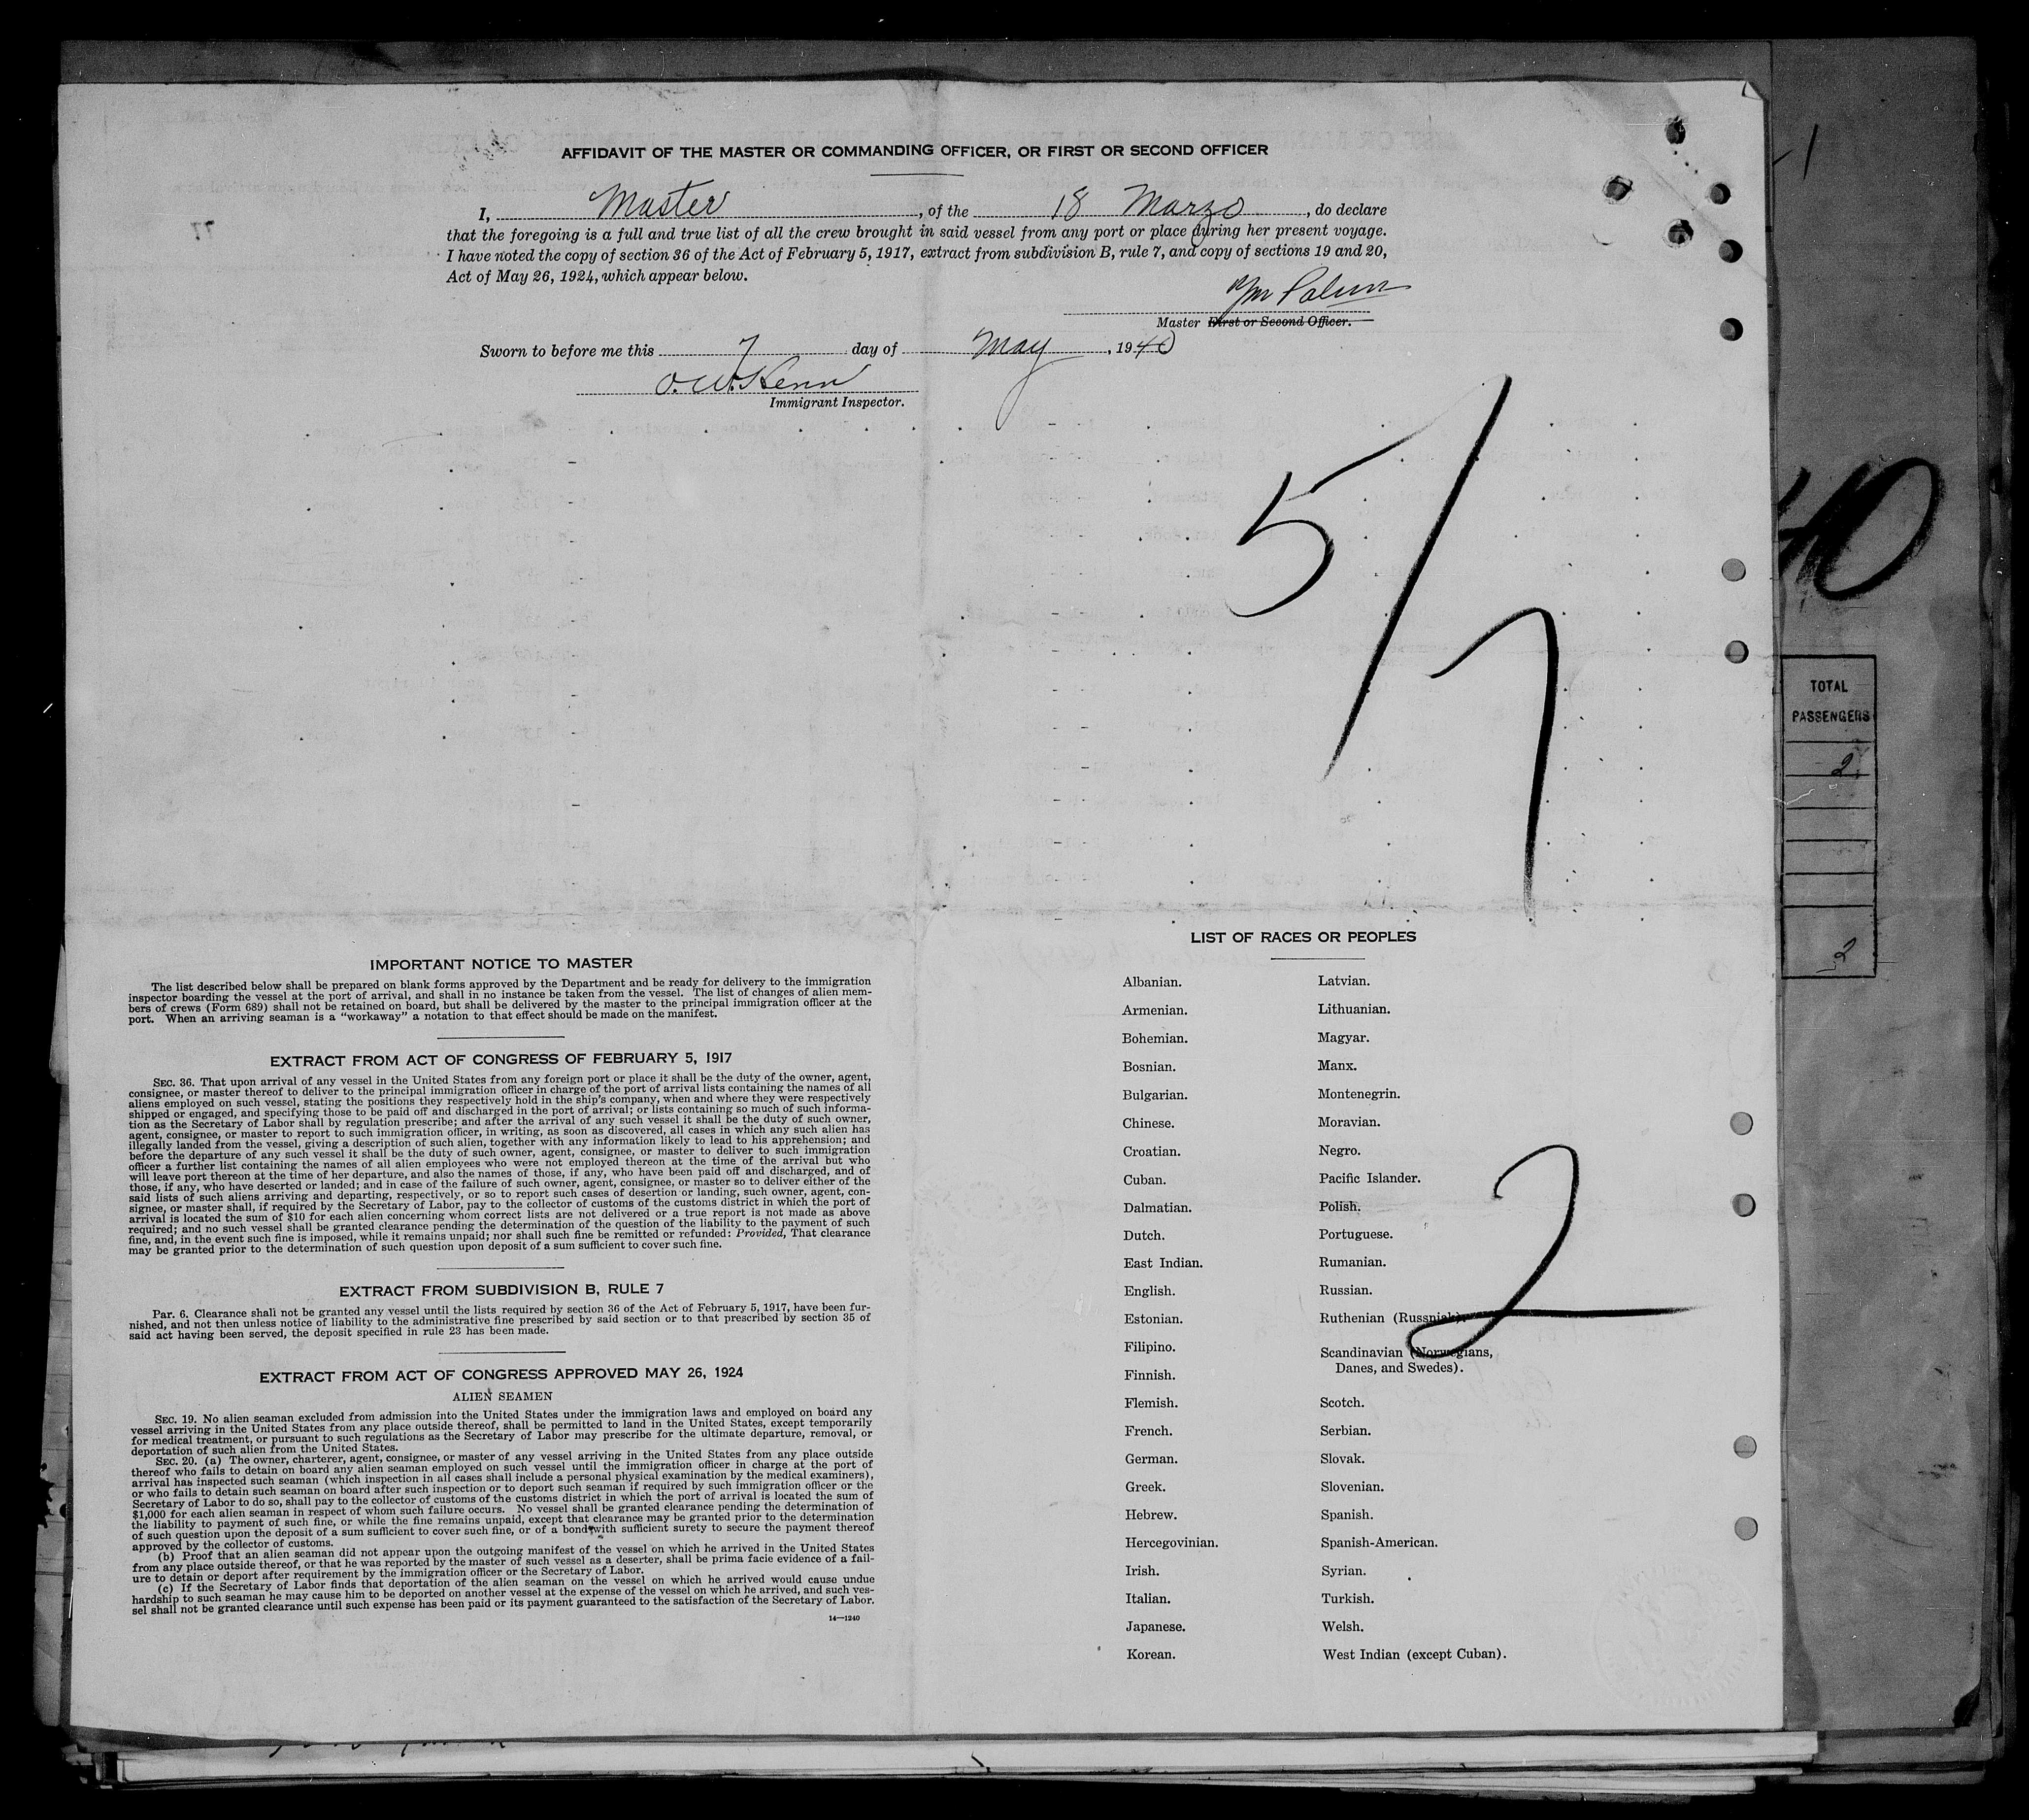 AFFIDAVIT OF THE MASTER OR COMMANDING OFFICER, OR FIRST OR SECOND OFFICER
I, Master, of the 18 Marzo, do declare
that the foregoing is a full and true list of all the crew brought in said vessel from any port or place during her present voyage.
I have noted the copy of section 36 of the Act of February 5, 1917, extract from subdivision B, rule 7, and copy of sections 19 and 20,
Act of May 26, 1924, which appear below.
Master First or Second Officer.
Sworn to before me this 7 day of May, 1940
Immigrant Inspector.
77
5/7
40
TOTAL
PASSENGERS
2
2
IMPORTANT NOTICE TO MASTER
The list described below shall be prepared on blank forms approved by the Department and be ready for delivery to the immigration
inspector boarding the vessel at the port of arrival, and shall in no instance be taken from the vessel. The list of changes of alien mem-
bers of crews (Form 689) shall not be retained on board, but shall be delivered by the master to the principal immigration officer at the
port. When an arriving seaman is a "workaway" a notation to that effect should be made on the manifest.
EXTRACT FROM ACT OF CONGRESS OF FEBRUARY 5, 1917
SEC. 36. That upon arrival of any vessel in the United States from any foreign port or place it shall be the duty of the owner, agent,
consignee, or master thereof to deliver to the principal immigration officer in charge of the port of arrival lists containing the names of all
aliens employed on such vessel, stating the positions they respectively hold in the ship's company, when and where they were respectively
shipped or engaged, and specifying those to be paid off and discharged in the port of arrival; or lists containing so much of such informa-
tion as the Secretary of Labor shall by regulation prescribe; and after the arrival of any such vessel it shall be the duty of such owner,
agent, consignee, or master to report to such immigration officer, in writing, as soon as discovered, all cases in which any such alien has
illegally landed from the vessel, giving a description of such alien, together with any information likely to lead to his apprehension; and
before the departure of any such vessel it shall be the duty of such owner, agent, consignee, or master to deliver to such immigration
officer a further list containing the names of all alien employees who were not employed thereon at the time of the arrival but who
will leave port thereon at the time of her departure, and also the names of those, if any, who have been paid off and discharged, and of
those, if any, who have deserted or landed; and in case of the failure of such owner, agent, consignee, or master so to deliver either of the
said lists of such aliens arriving and departing, respectively, or so to report such cases of desertion or landing, such owner, agent, con-
signee, or master shall, if required by the Secretary of Labor, pay to the collector of customs of the customs district in which the port of
arrival is located the sum of $10 for each alien concerning whom correct lists are not delivered or a true report is not made as above
required; and no such vessel shall be granted clearance pending the determination of the question of the liability to the payment of such
fine, and, in the event such fine is imposed, while it remains unpaid; nor shall such fine be remitted or refunded: Provided, That clearance
may be granted prior to the determination of such question upon deposit of a sum sufficient to cover such fine.
EXTRACT FROM SUBDIVISION B, RULE 7
Par. 6. Clearance shall not be granted any vessel until the lists required by section 36 of the Act of February 5, 1917, have been fur-
nished, and not then unless notice of liability to the administrative fine prescribed by said section or to that prescribed by section 35 of
said act having been served, the deposit specified in rule 23 has been made.
EXTRACT FROM ACT OF CONGRESS APPROVED MAY 26, 1924
ALIEN SEAMEN
SEC. 19. No alien seaman excluded from admission into the United States under the immigration laws and employed on board any
vessel arriving in the United States from any place outside thereof, shall be permitted to land in the United States, except temporarily
for medical treatment, or pursuant to such regulations as the Secretary of Labor may prescribe for the ultimate departure, removal, or
deportation of such alien from the United States.
SEC. 20. (a) The owner, charterer, agent, consignee, or master of any vessel arriving in the United States from any place outside
thereof who fails to detain on board any alien seaman employed on such vessel until the immigration officer in charge at the port of
arrival has inspected such seaman (which inspection in all cases shall include a personal physical examination by the medical examiners),
or who fails to detain such seaman on board after such inspection or to deport such seaman if required by such immigration officer or the
Secretary of Labor to do so, shall pay to the collector of customs of the customs district in which the port of arrival is located the sum of
$1,000 for each alien seaman in respect of whom such failure occurs. No vessel shall be granted clearance pending the determination of
the liability to payment of such fine, or while the fine remains unpaid, except that clearance may be granted prior to the determination
of such question upon the deposit of a sum sufficient to cover such fine, or of a bond with sufficient surety to secure the payment thereof
approved by the collector of customs.
(b) Proof that an alien seaman did not appear upon the outgoing manifest of the vessel on which he arrived in the United States
from any place outside thereof, or that he was reported by the master of such vessel as a deserter, shall be prima facie evidence of a fail-
ure to detain or deport after requirement by the immigration officer or the Secretary of Labor.
(c) If the Secretary of Labor finds that deportation of the alien seaman on the vessel on which he arrived would cause undue
hardship to such seaman he may cause him to be deported on another vessel at the expense of the vessel on which he arrived, and such ves-
sel shall not be granted clearance until such expense has been paid or its payment guaranteed to the satisfaction of the Secretary of Labor.
14—1240
LIST OF RACES OR PEOPLES
Albanian.
Armenian.
Bohemian.
Bosnian.
Bulgarian.
Chinese.
Croatian.
Cuban.
Dalmatian.
Dutch.
East Indian.
English.
Estonian.
Filipino.
Finnish.
Flemish.
French.
German.
Greek.
Hebrew.
Hercegovinian.
Irish.
Italian.
Japanese.
Korean.
Latvian.
Lithuanian.
Magyar.
Manx.
Montenegrin.
Moravian.
Negro.
Pacific Islander.
Polish.
Portuguese.
Rumanian.
Russian.
Ruthenian (Russniak).
Scandinavian (Norwegians,
Danes, and Swedes).
Scotch.
Serbian.
Slovak.
Slovenian.
Spanish.
Spanish-American.
Syrian.
Turkish.
Welsh.
West Indian (except Cuban).
2